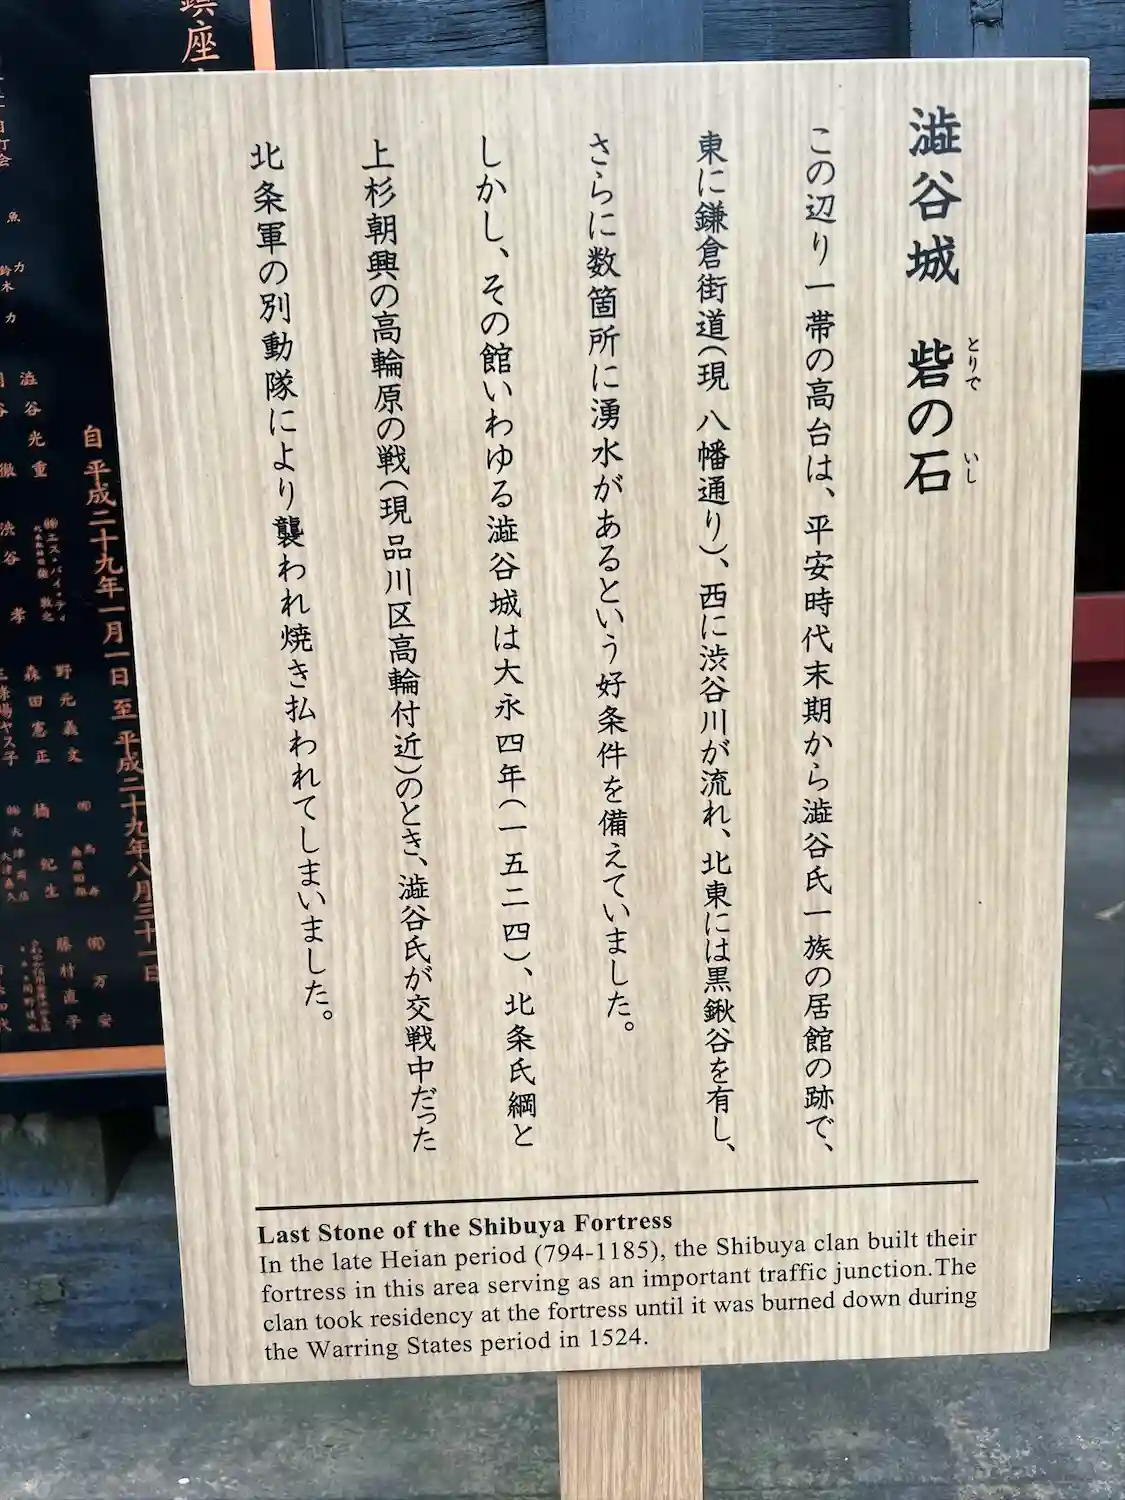 澁谷城 砦の石
とりで いし
この辺り一帯の高台は、平安時代末期から澁谷氏一族の居館の跡で、
東に鎌倉街道(現 八幡通り)、西に渋谷川が流れ、北東には黒鍬谷を有し、
さらに数箇所に湧水があるという好条件を備えていました。
しかし、その館いわゆる澁谷城は大永四年(一五二四)、北条氏綱と
上杉朝興の高輪原の戦(現 品川区高輪付近)のとき、澁谷氏が交戦中だった
北条軍の別動隊により襲われ焼き払われてしまいました。
Last Stone of the Shibuya Fortress
In the late Heian period (794-1185), the Shibuya clan built their
fortress in this area serving as an important traffic junction.The
clan took residency at the fortress until it was burned down during
the Warring States period in 1524.
鎮座
自 平成二十九年一月一日 至 平成二十九年八月三十一日
野元義文
藤村直子
万安
澁谷光重
森田憲正
橘紀生
渋谷 孝